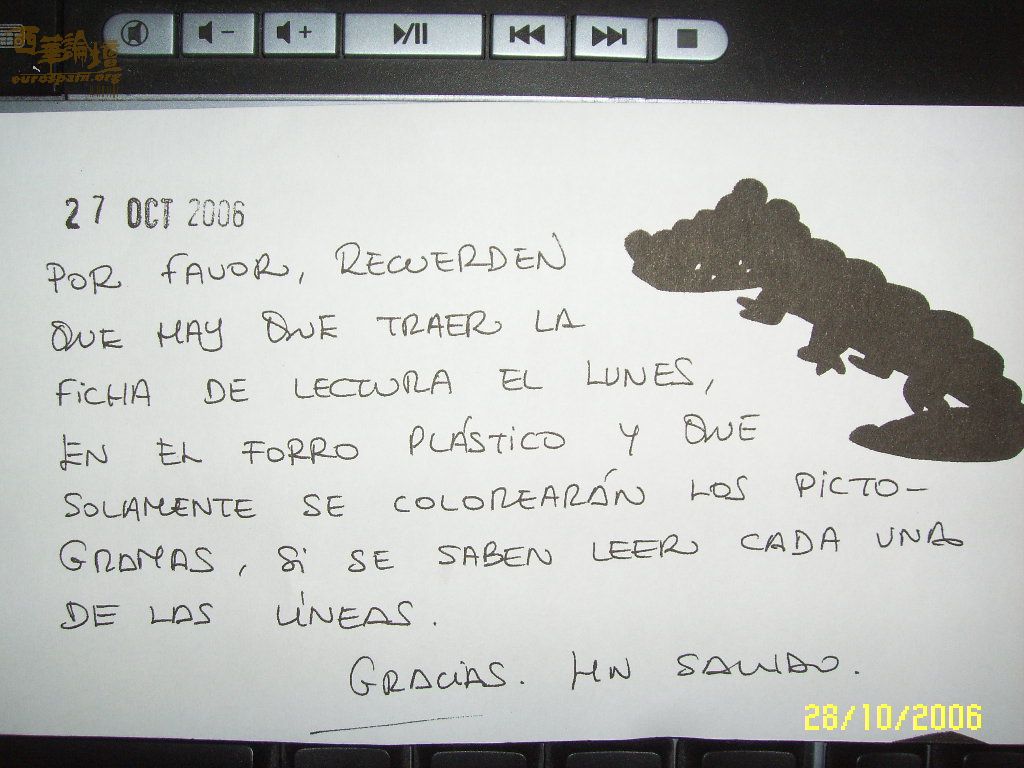 西華論壇
eurospain.org
27 OCT 2006
POR FAVOR, RECUERDEN
QUE HAY QUE TRAER LA
FICHA DE LECTURA EL LUNES,
EN EL FORRO PLÁSTICO Y QUE
SOLAMENTE SE COLOREARÁN LOS PICTO-
GRAMAS, SI SE SABEN LEER CADA UNA
DE LAS LÍNEAS.
GRACIAS. UN SALUDO.
28/10/2006